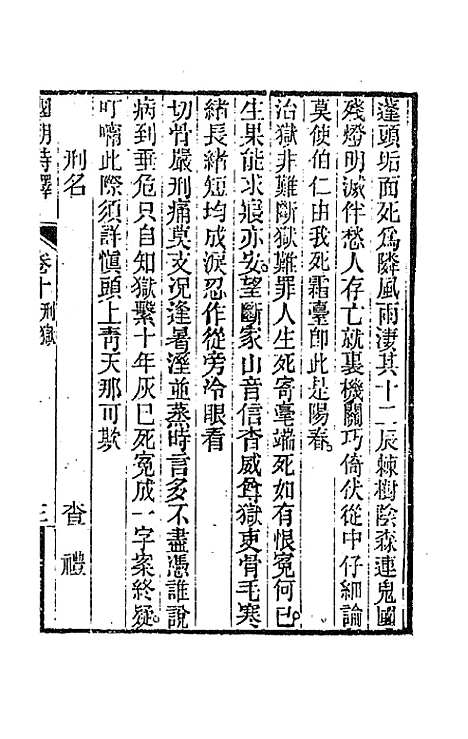 蓬頭垢面死爲隣風雨淒其十二辰棘樹陰森連鬼國
殘燈明滅伴愁人存亡就裏機關巧倚伏從中仔細論
莫使伯仁由我死霜臺卽此是陽春
治獄非難斷獄難罪人生死寄毫端死如有恨冤何已
生果能求寢亦安望斷家山音信杳威尊獄吏骨毛寒
緒長緒短均成淚忍作從旁冷眼看
切骨嚴刑痛莫支況逢暑溼並蒸時言多不盡憑誰說
病到垂危只自知獄繫十年灰已死冤成一字案終疑
叮嚀此際須詳愼頭上靑天那可欺
刑名
查禮
國朝詩鐸
卷十刑獄
三